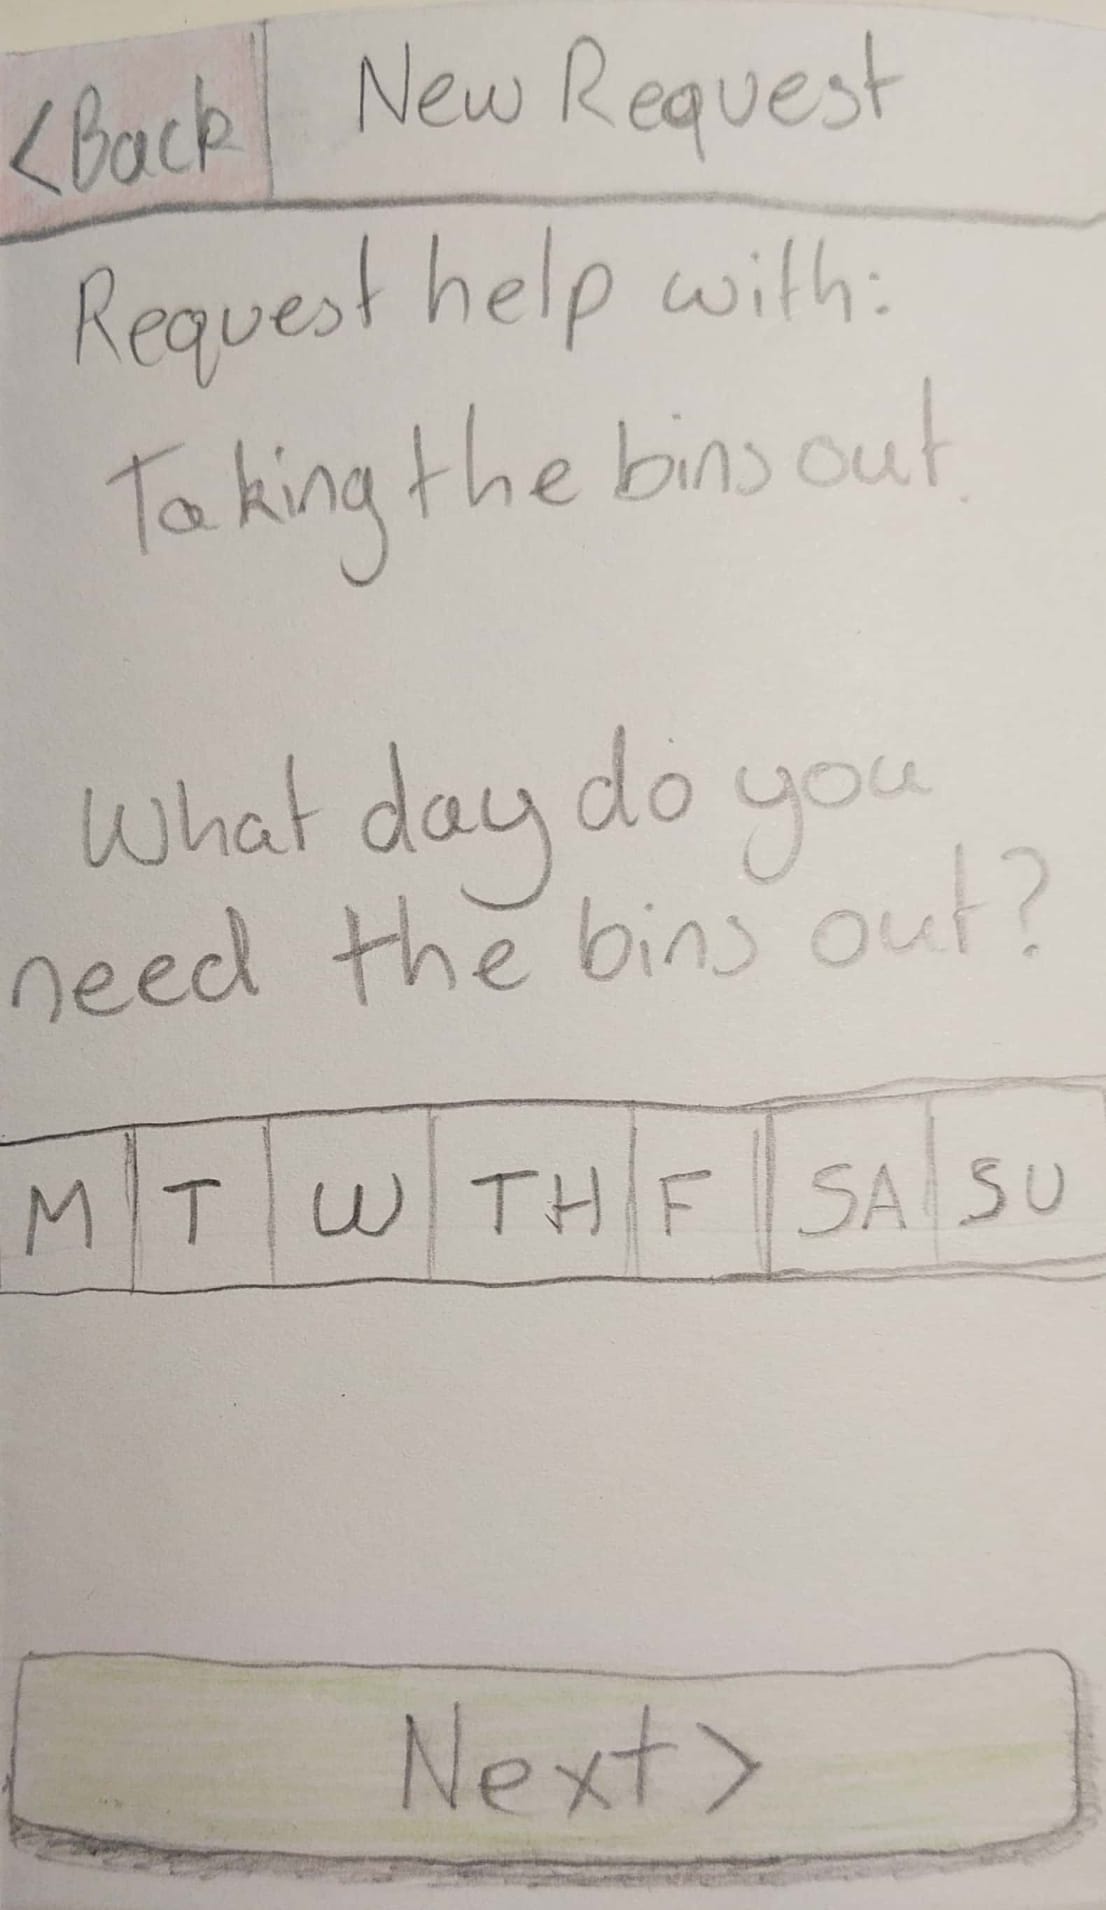 <Back New Request
Request help with:
Taking the bins out.
What day do you
need the bins out?
M T W TH F SA SU
Next>